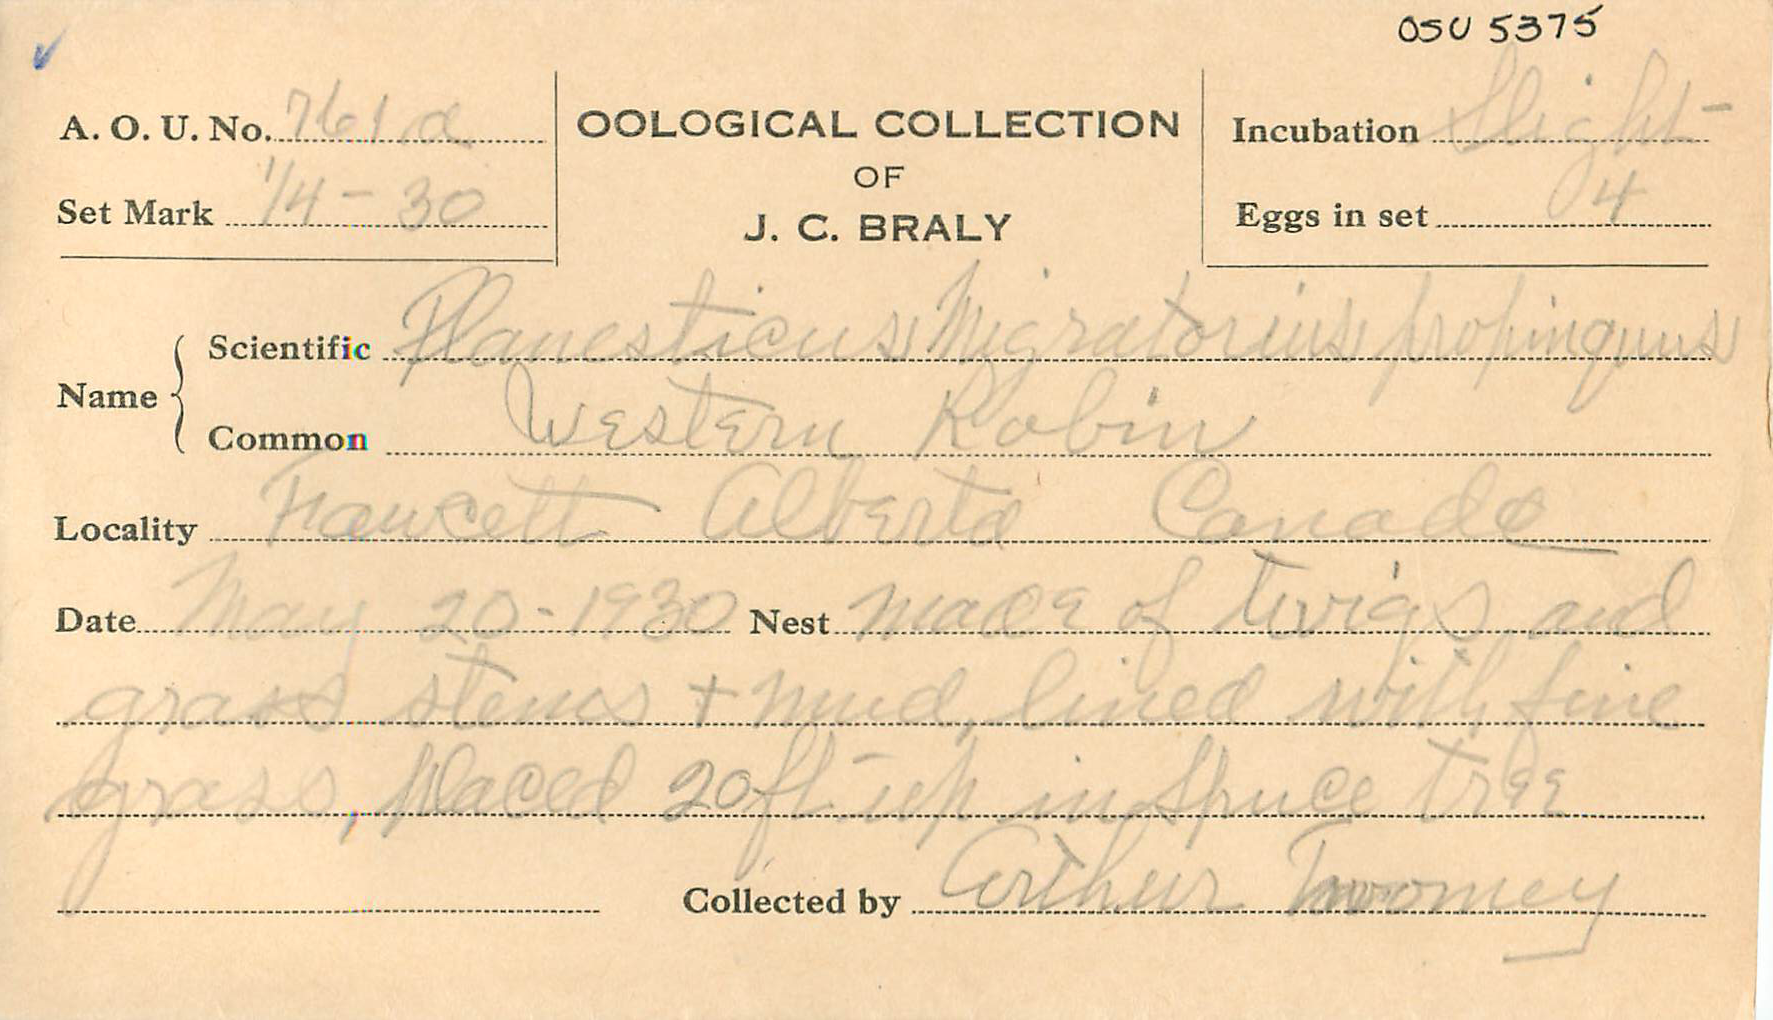 OSU 5375
A. O. U. No. 761a
Set Mark 1/4 - 30
OOLOGICAL COLLECTION
OF
J. C. BRALY
Incubation Slight
Eggs in set 4
Name
Scientific Planesticus Migratorius propinquus
Common Western Robin
Locality Fawcett Alberta Canada
Date May 20 - 1930 Nest made of twigs and
grass stems + mud, lined with fine
grass, placed 20 ft up in Spruce tree
Collected by Arthur Twomey